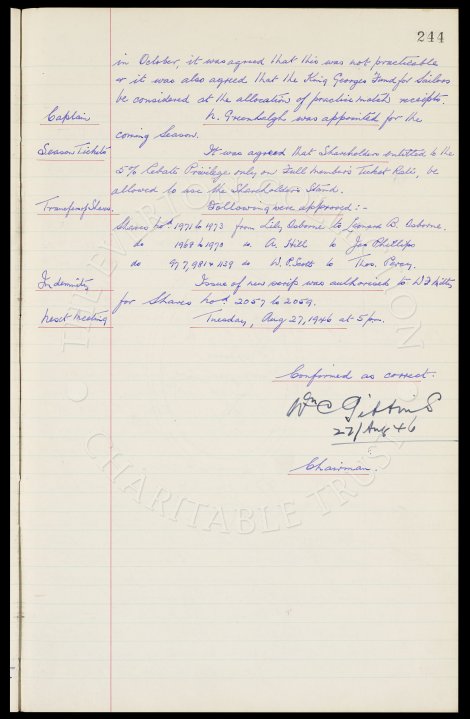 244
in October, it was agreed that this was not practicable
& it was also agreed that the King Georges Fund for Sailors
be considered at the allocation of practice match receipts.
Captain N. Greenhalgh was appointed for the
coming Season.
Season Tickets It was agreed that Shareholders entitled to the
5% Rebate Privilege only, on Full Members Ticket Rate, be
allowed to use the Shareholders Stand.
Transfer of Shares. Following were approved :-
Shares Nod. 1971 to 1973 from Lily Osborne to Leonard B. Osborne.
do 1968 to 1970 do A. Hill to Jas Phillips
do 977, 981 & 1139 do W. P. Scott to Thos. Percy.
Indemnity Issue of new scrip was authorised to W J
for Shares Nod. 2057 to 2059.
Next Meeting Tuesday, Aug 27, 1946 at 5 pm.
Confirmed as correct.
Wm C Gibbins
27/Aug 46
Chairman.
© THE EVERTON COLLECTION
CHARITABLE TRUST